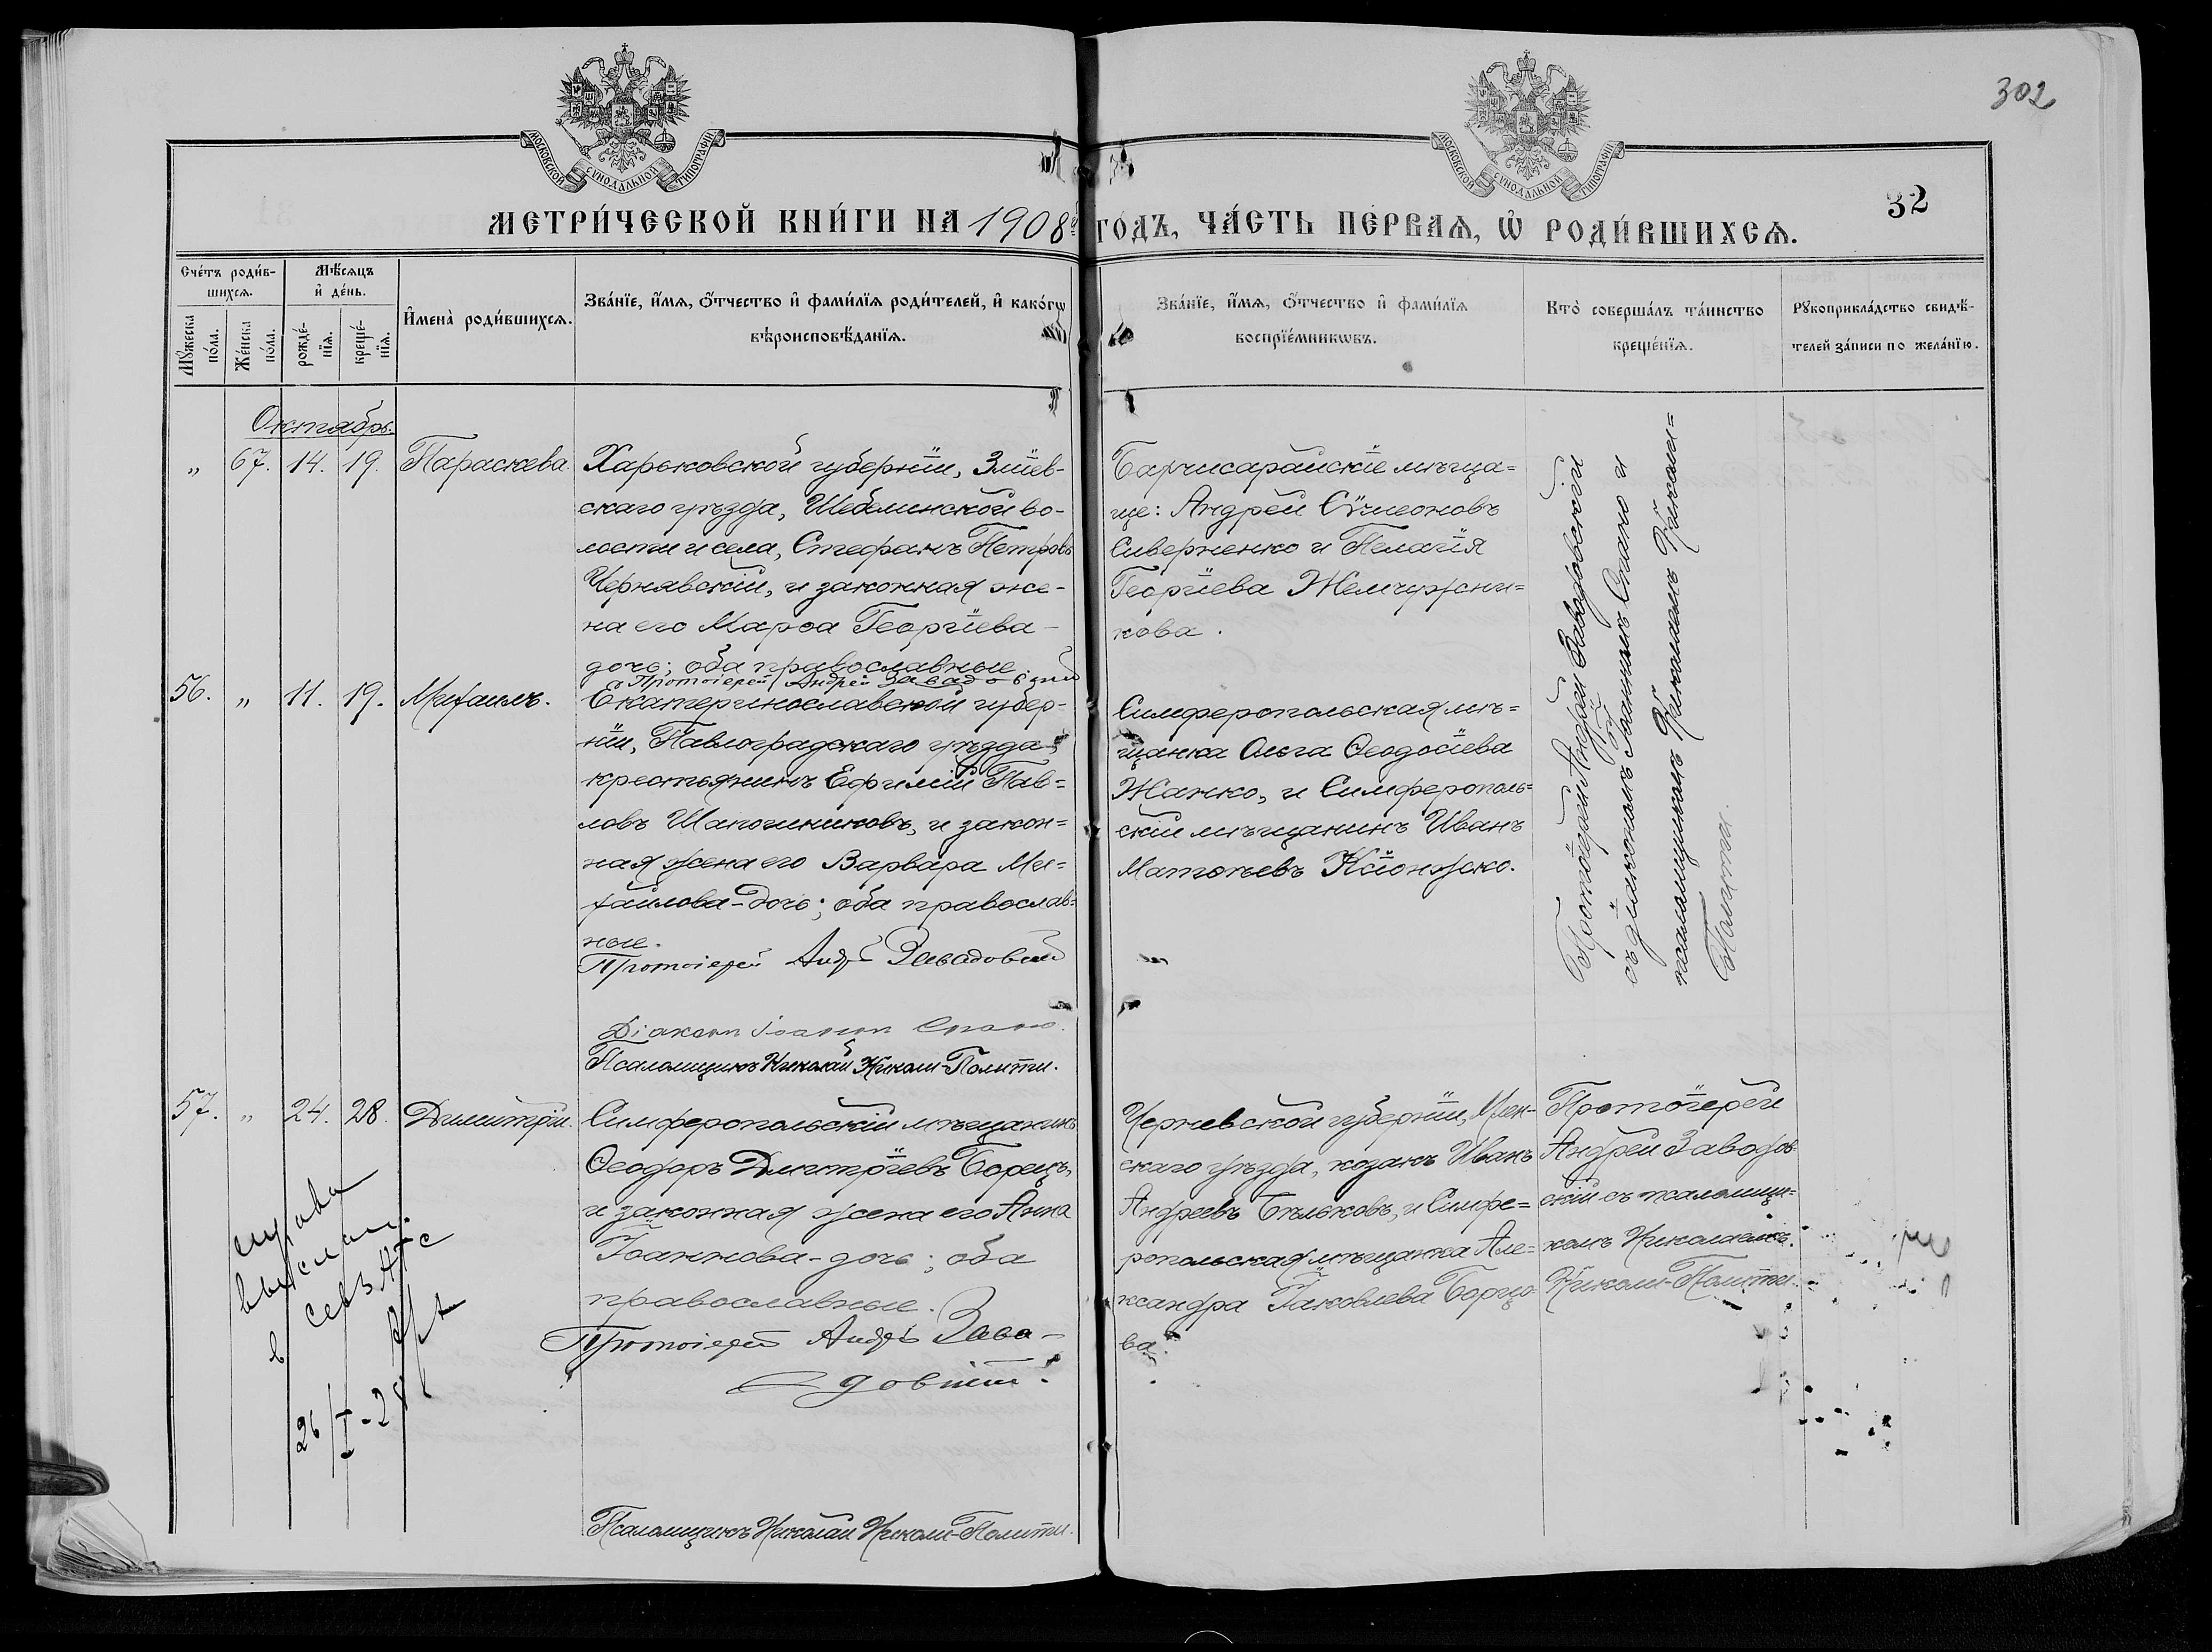 302
МОСКОВСКОЙ СУНОДАЛЬНОЙ ТИПОГРАФІИ
МОСКОВСКОЙ СУНОДАЛЬНОЙ ТИПОГРАФІИ
32
МЕТРИ́ЧЕСКОЙ КНИ́ГИ НА 1908й ГО́ДЪ, ЧА́СТЬ ПЕ́РВАѦ, Ѡ҆ РОДИ́ВШИХСѦ.
Сче́тъ роди́в-
шихсѧ.
Мꙋ́жеска по́ла.
Же́нска по́ла.
Мѣ́сѧцъ
и҆ де́нь.
рожде́-
нїѧ.
креще́-
нїѧ.
И҆мена̀ роди́вшихсѧ.
Зва́нїе, и҆́мѧ, ѻ҆́тчество и҆ фами́лїѧ роди́телей, и҆ како́гѡ
вѣроисповѣ́данїѧ.
Зва́нїе, и҆́мѧ, ѻ҆́тчество и҆ фами́лїѧ
воспрїе́мникѡвъ.
Кто̀ соверша́лъ та́инство
креще́нїѧ.
Рꙋкоприкла́дство свидѣ́-
телей за́писи по жела́нїю.
Октябрь.
„ 67. 14. 19. Параскева.
Харьковской губерніи, Зміев-
скаго уѣзда, Шебелинской во-
лости и села, Стефанъ Петровъ
Чернявскій, и законная же-
на его Марѳа Георгіева
дочь; оба православные.
Протоіерей Андрей Завадовскій
Бахчисарайскіе мѣща=
не: Андрей Сѵмеоновъ
Сиверненко и Пелагія
Георгіева Жемчужни=
кова.
Протоіерей Андрей Завадовскій
съ діакономъ Іоанномъ Спано и
псаломщикомъ Николаемъ Николи=
Политти.
56. „ 11. 19. Михаилъ.
Екатеринославской губер-
ніи, Павлоградскаго уѣзда,
крестьянинъ Ефимій Пав=
ловъ Шапочниковъ, и закон=
ная жена его Варвара Ми=
хайлова-дочь; оба православ=
ные.
Протоіерей Андрей Завадовскій
Діаконъ Іоаннъ Спано.
Псаломщикъ Николай Николи-Политти.
Симферопольская мѣ=
щанка Ольга Ѳеодосіева
Жанко, и Симферополь=
скій мѣщанинъ Иванъ
Матѳеевъ
57. „ 24. 28. Димитрій.
Симферопольскій мѣщанинъ
Ѳеодоръ Дмитріевъ Борецъ,
и законная жена его Анна
Іоаннова-дочь; оба
православные.
Протоіерей Андрей Зава-
довскій.
Псаломщикъ Николай Николи-Политти.
скаго уѣзда, козакъ Иванъ
Андреевъ Бѣльковъ, и Симфе=
ропольская мѣщанка Але=
ксандра Іаковлева Борцо
ва.
Протоіерей
Андрей Завадов
скій съ псаломщи=
комъ Николаемъ
Николи-Политти.
выслан
в
26/I-28